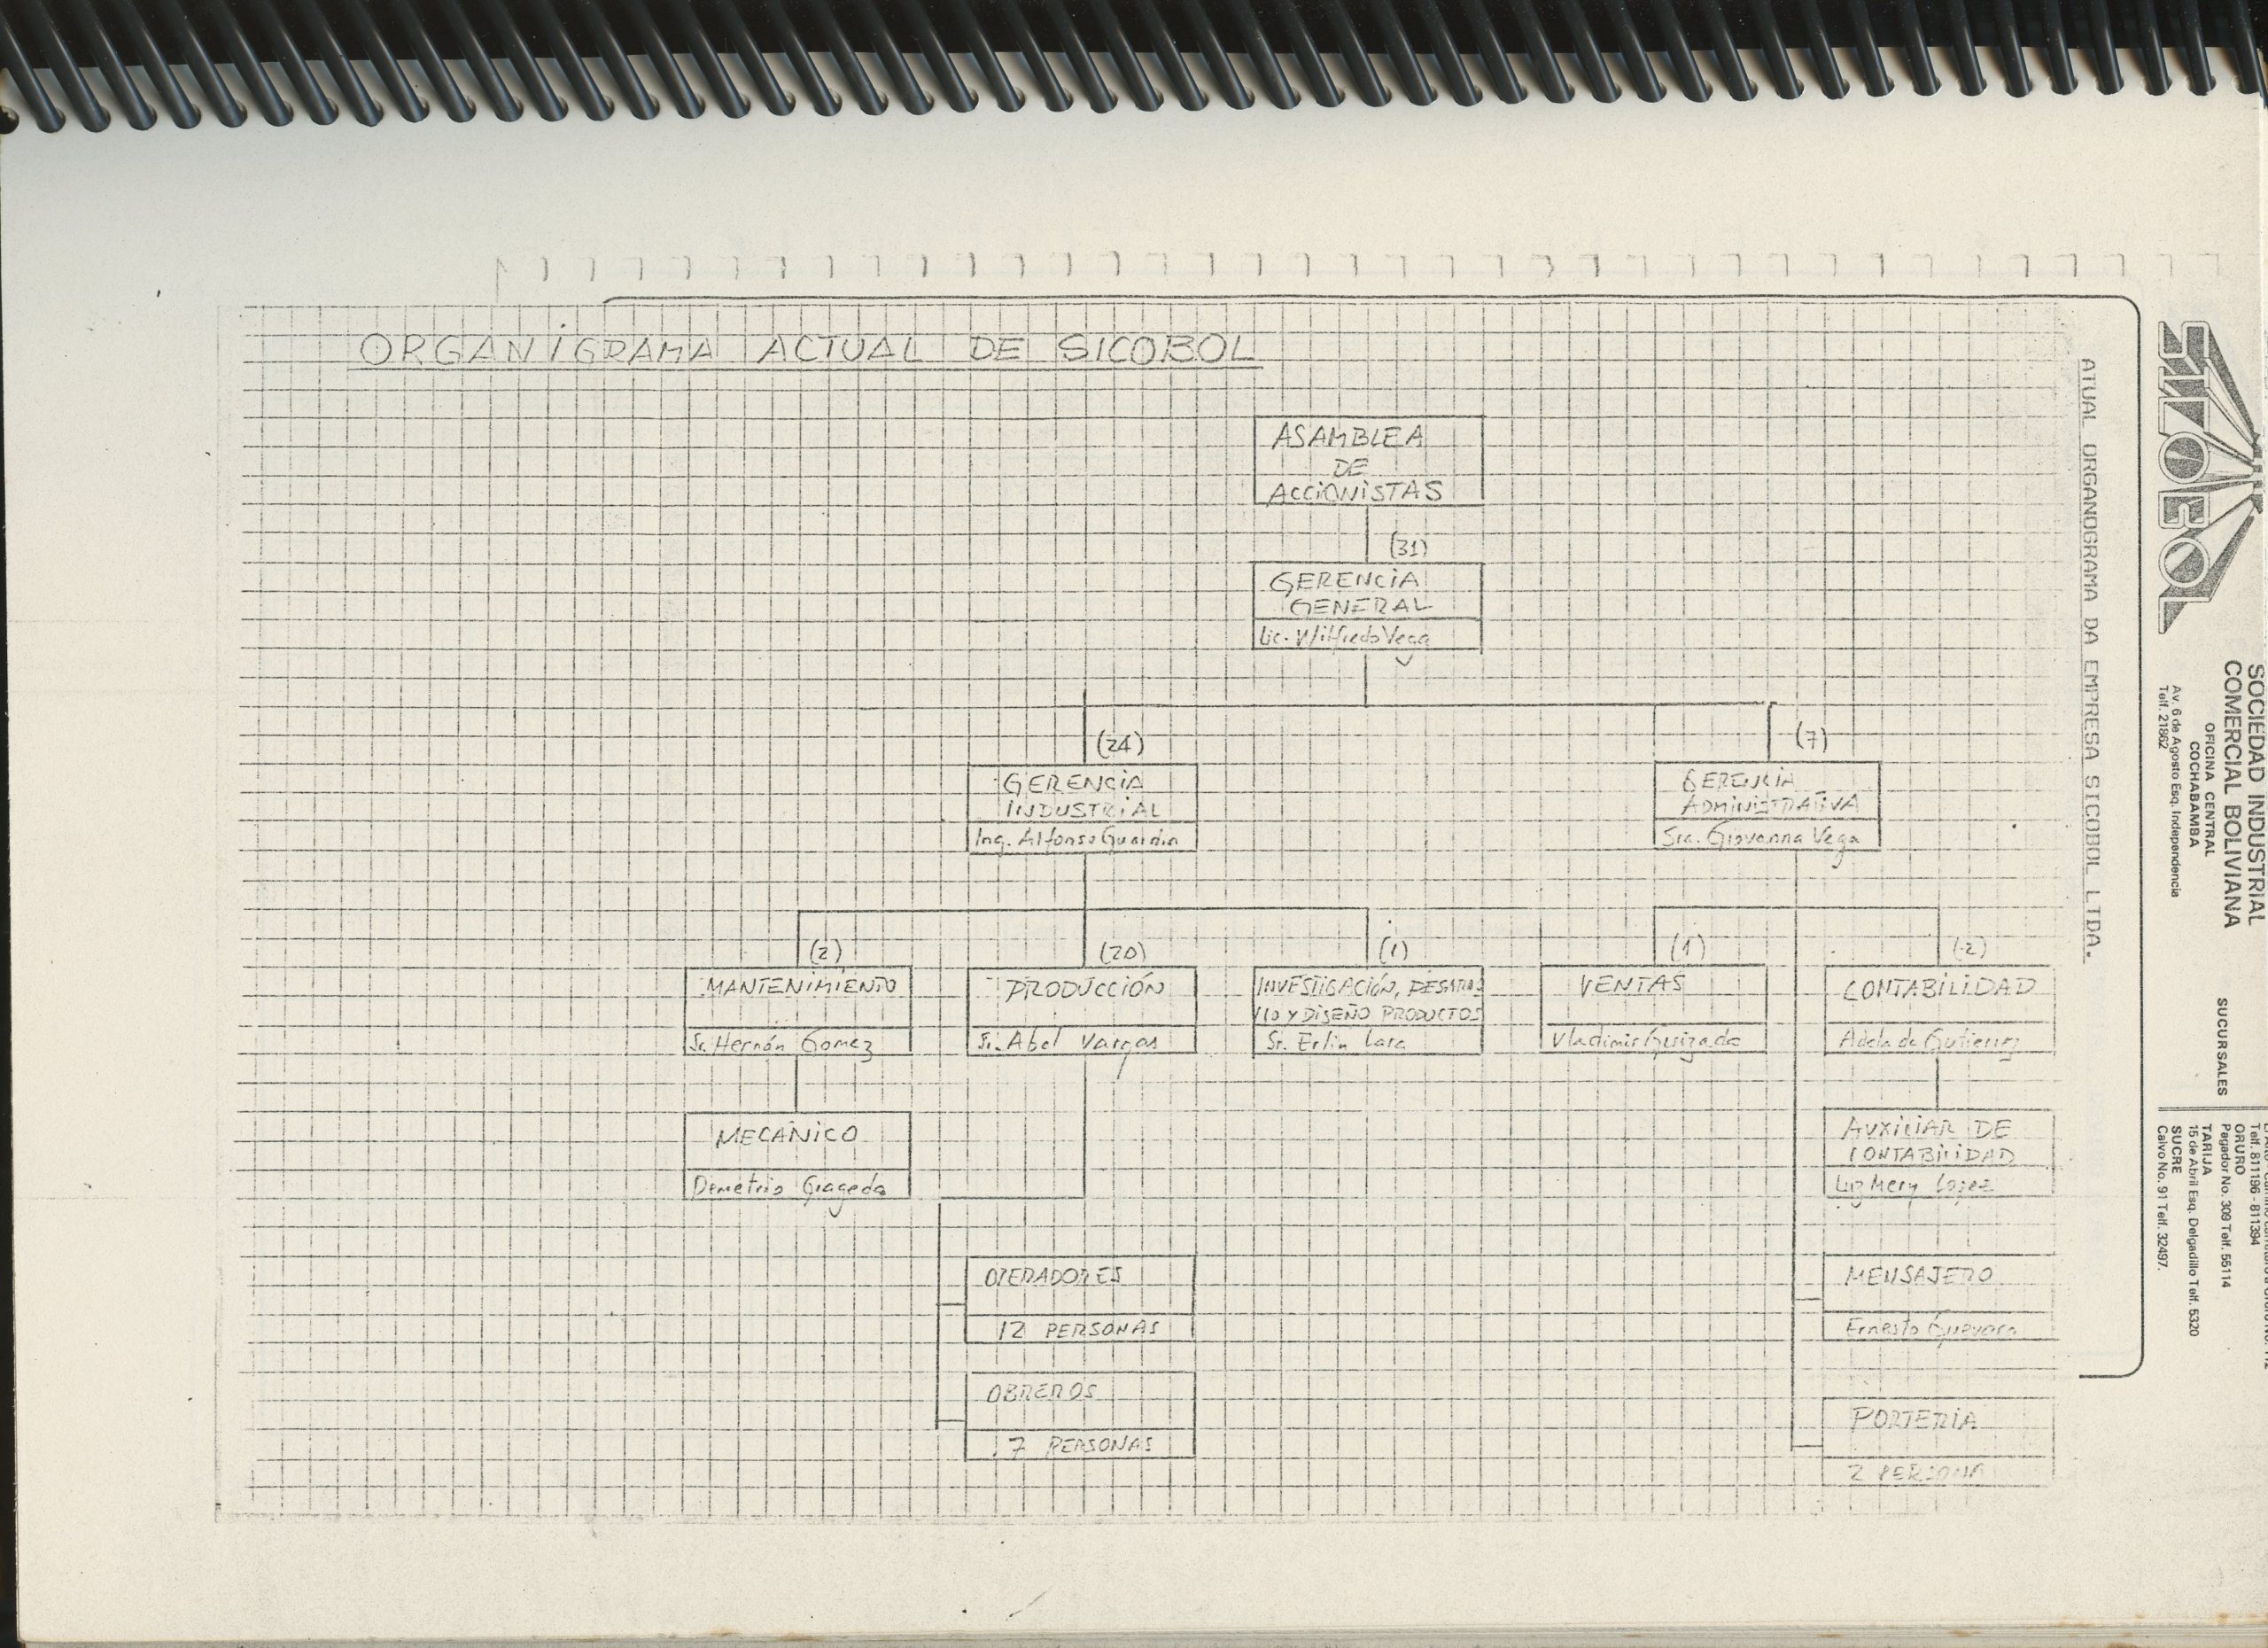 ORGANIGRAMA ACTUAL DE SICOBOL
ASAMBLEA
DE
ACCIONISTAS
(31)
GERENCIA
GENERAL
Lic. Wilfredo Vega
(24)
GERENCIA
INDUSTRIAL
Ing. Alfonso Guardia
(7)
GERENCIA
ADMINISTRATIVA
Sra. Giovanna Vega
(2)
MANTENIMIENTO
Sr. Hernán Gomez
(20)
PRODUCCIÓN
Sr. Abel Vargas
(1)
INVESTIGACIÓN, DESARRO
LLO Y DISEÑO PRODUCTOS
Sr. Erlin Lara
(1)
VENTAS
Vladimir Guizada
(2)
CONTABILIDAD
Adela de Gutierrez
MECÁNICO
Demetrio Grageda
AUXILIAR DE
CONTABILIDAD
Luz Mery Lopez
OPERADORES
12 PERSONAS
MENSAJERO
Ernesto Guevara
OBREROS
7 PERSONAS
PORTERIA
2 PERSONA
ATUAL ORGANOGRAMA DA EMPRESA SICOBOL LTDA.
SICOBOL
SOCIEDAD INDUSTRIAL
COMERCIAL BOLIVIANA
OFICINA CENTRAL
COCHABAMBA
Av. 6 de Agosto Esq. Independencia
Telf. 21862
SUCURSALES
Telf. 811196 - 811394
ORURO
Pagador No. 309 Telf. 55114
TARIJA
15 de Abril Esq. Delgadillo Telf. 5320
SUCRE
Calvo No. 91 Telf. 32497.